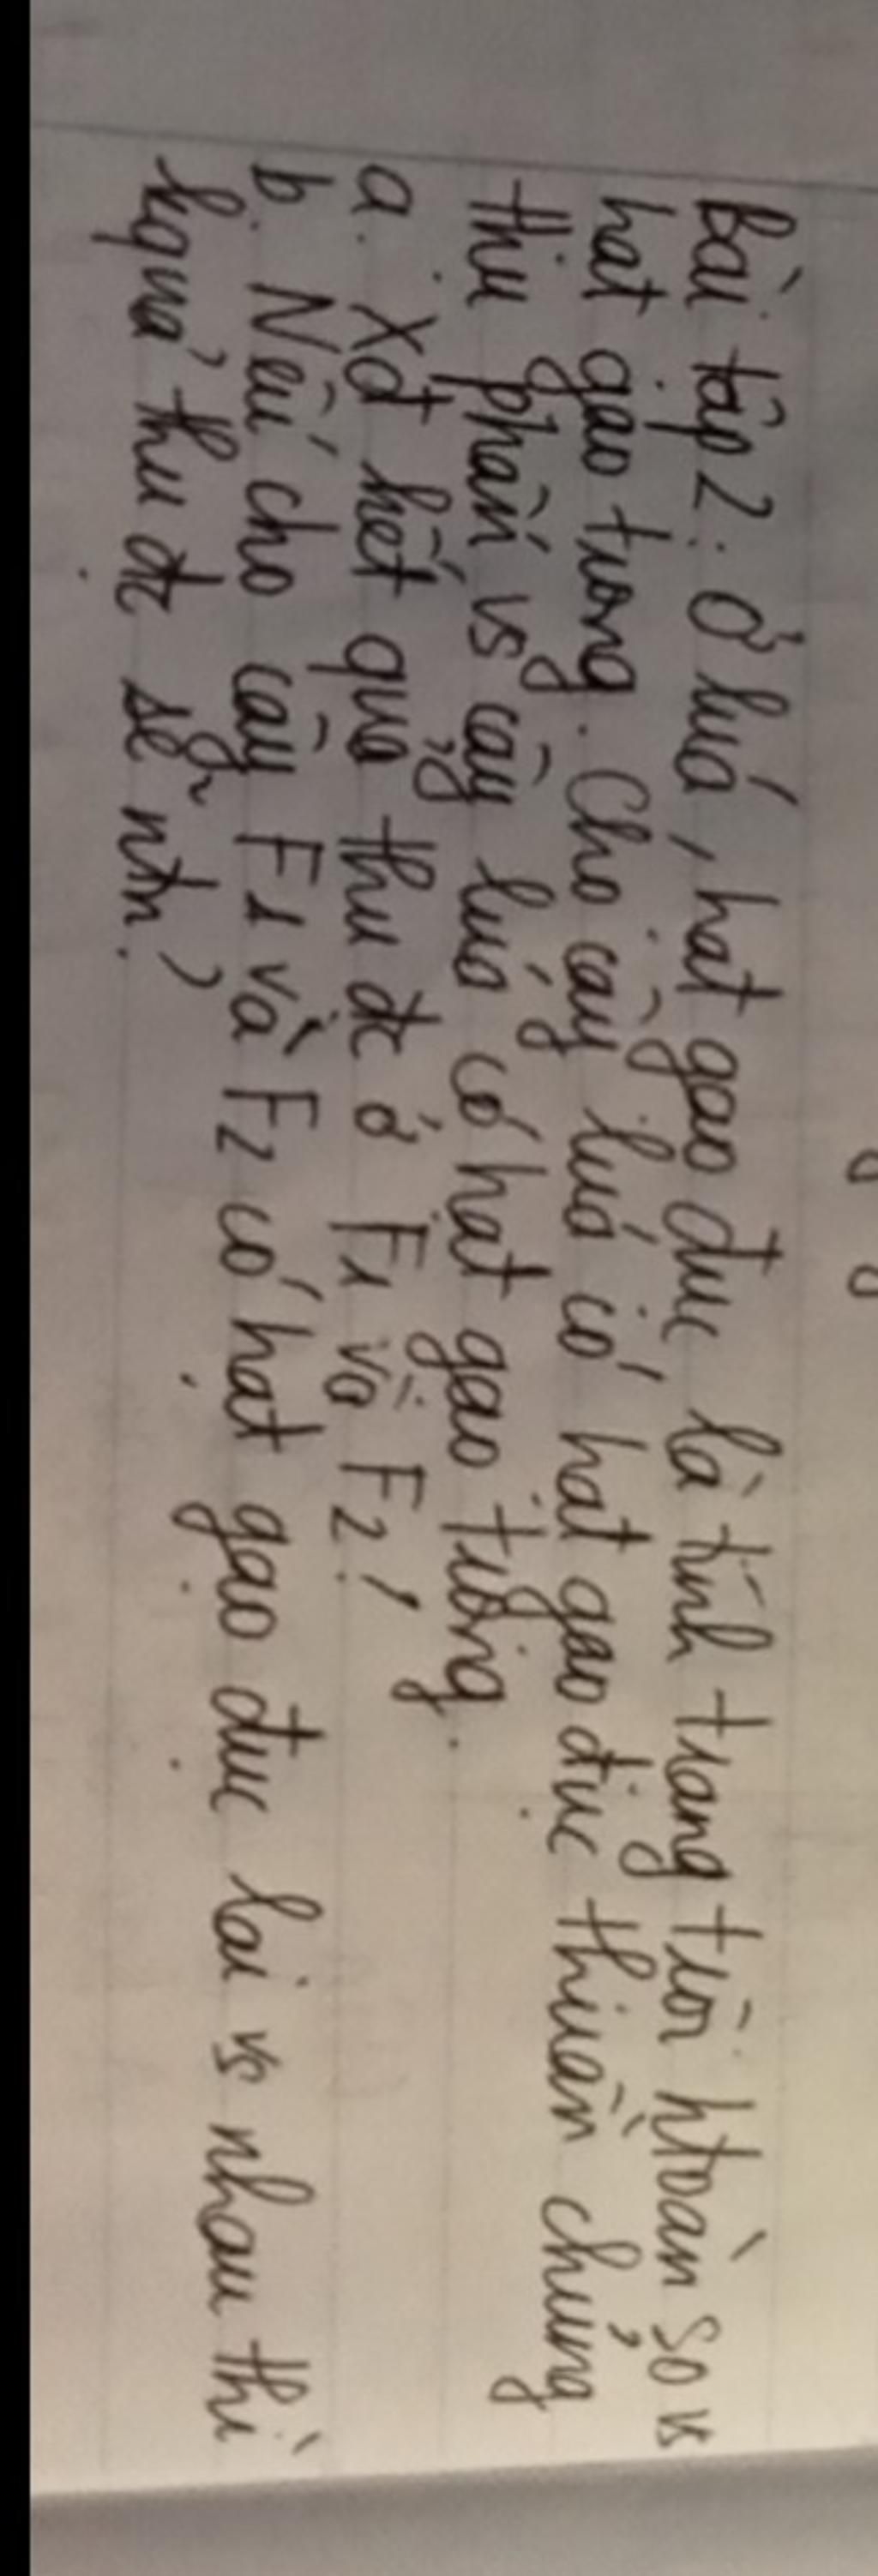 Bài tập 2: Ở lúa, hạt gạo đục là tính trạng trội htoàn so vs
hạt gạo trong. Cho cây lúa có hạt gạo đục thuần chủng
thụ phấn vs cây lúa có hạt gạo trong.
a. Xđ kết quả thu đc ở F1 và F2!
b. Nếu cho cây F1 và F2 có hạt gạo đục lai vs nhau thì
kquả thu đc sẽ ntn?